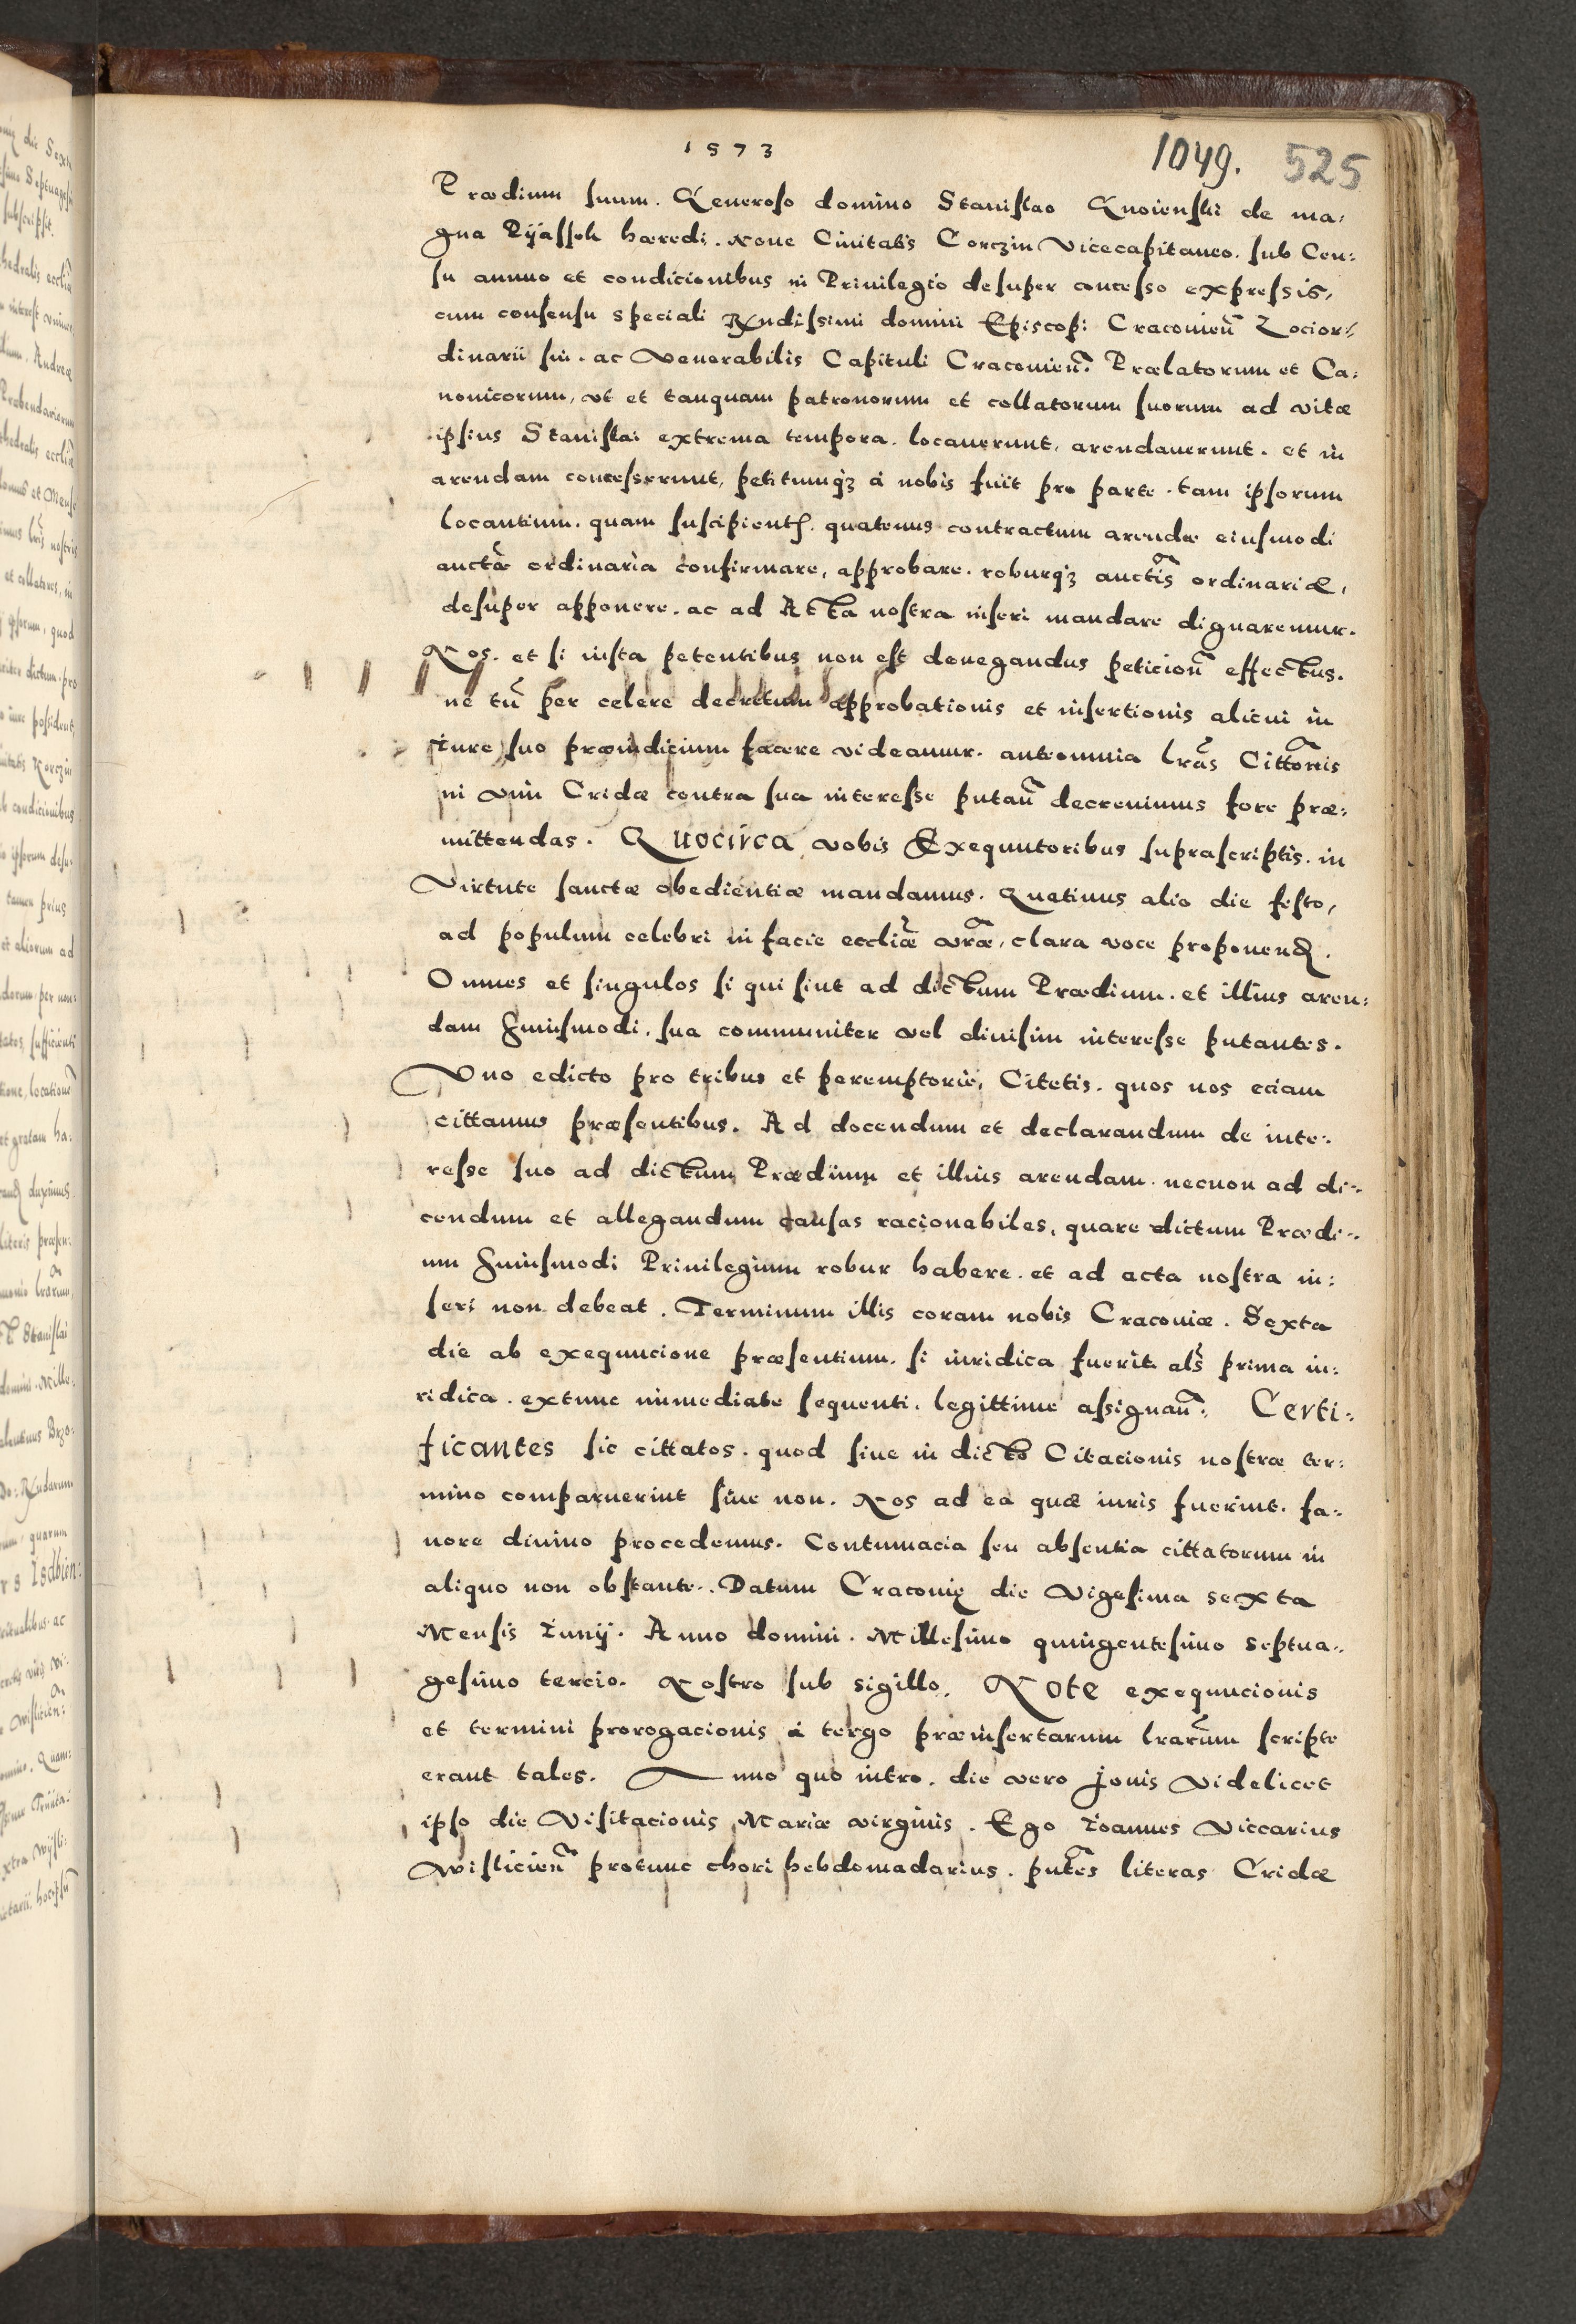 1573
1049. 525
Prædium suum. Generoso domino Stanislao Gnoienski de ma:
gna Pÿassek hæredi. Noue Ciuitatis Corczin Vicecapitaneo. sub Cen:
su annuo et condicionibus in Priuilegio desuper concesso expressis,
cum consensu speciali Rndissimi domini Episcopi Craconien̄ Locior:
dinarii sui. ac Venerabilis Capituli Craconien̄. Prælatorum et Ca:
nonicorum, vt et tanquam patronorum et collatorum suorum ad vitæ
ipsius Stanislai extrema tempora. locauerunt, arendauerunt. et in
arendam concesserunt, petitumqʒ à nobis fuit pro parte. tam ipsorum
locantium. quam suscipient. quatenus contractum arendæ eiusmodi
auctā̄e ordinaria confirmare, approbare. roburqʒ auctīs ordinariæ,
desuper apponere. ac ad Acta nostra inseri mandare dignaremur.
Nos. et si iusta petentibus non est denegandus peticion̄ effectus.
ne tn̄ per celere decretum approbationis et insertionis alicui in
iure suo præiudicium facere videamur. anteomnia lrās Cittōnis
in vim Cridæ contra sua interesse putan̄ decreuimus fore præ:
mittendas. Quocirca vobis Exequutoribus suprascriptis. in
Virtute sanctæ obedientiæ mandamus. Quatinus alio die festo,
ad populum celebri in facie eccliæ vræ, clara voce proponend.
Omnes et singulos si qui sint ad dictum Prædium. et illius aren:
dam huiusmodi. sua communiter vel diuisim interesse putantes.
Vno edicto pro tribus et peremptorie, Citetis. quos nos eciam
cittamus præsentibus. Ad docendum et declarandum de inte:
resse suo ad dictum Prædium et illius arendam. necnon ad di:
cendum et allegandum causas racionabiles, quare dictum Prædi:
um huiusmodi Priuilegium robur habere. et ad acta nostra in:
seri non debeat. Terminum illis coram nobis Craconiæ. Sexta
die ab exequucione præsentium. si iuridica fuerit als̄ prima iu:
ridica. extunc immediate sequenti. legittime assignan̄. Certi:
ficantes sic cittatos. quod siue in dicto Citacionis nostræ ter:
mino comparuerint siue non. Nos ad ea quæ iuris fuerint. fa:
uore diuino procedemus. Contumacia seu absentia cittatorum in
aliquo non obstante. Datum Craconię die Vigesima sexta
Mensis Iunÿ. Anno domini. Millesimo quingentesimo septua:
gesimo tercio. Nostro sub sigillo. Note exequucionis
et termini prorogacionis à tergo præinsertarum lrarum scripte
erant tales. Anno quo intro. die vero Jouis videlicet
ipso die Visitacionis Mariæ virginis. Ego Ioannes Viccarius
Wislicien̄ protunc chori hebdomadarius. pn̄tes literas Cridæ